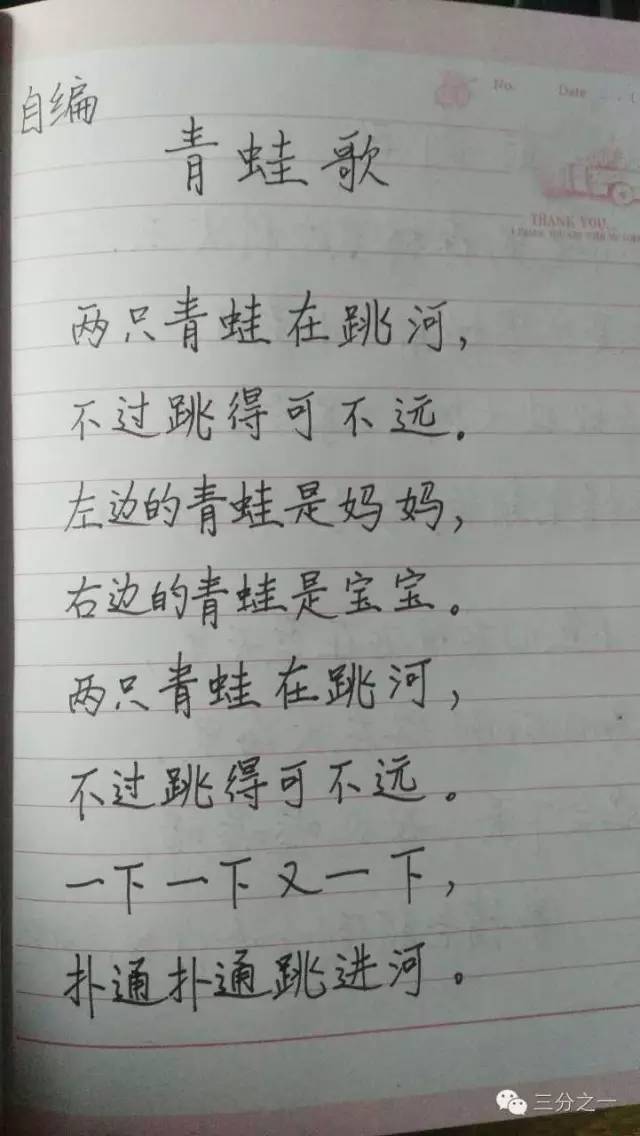 自编
No.
Date
青蛙歌
THANK YOU...
两只青蛙在跳河，
不过跳得可不远。
左边的青蛙是妈妈，
右边的青蛙是宝宝。
两只青蛙在跳河，
不过跳得可不远。
一下一下又一下，
扑通扑通跳进河。
三分之一